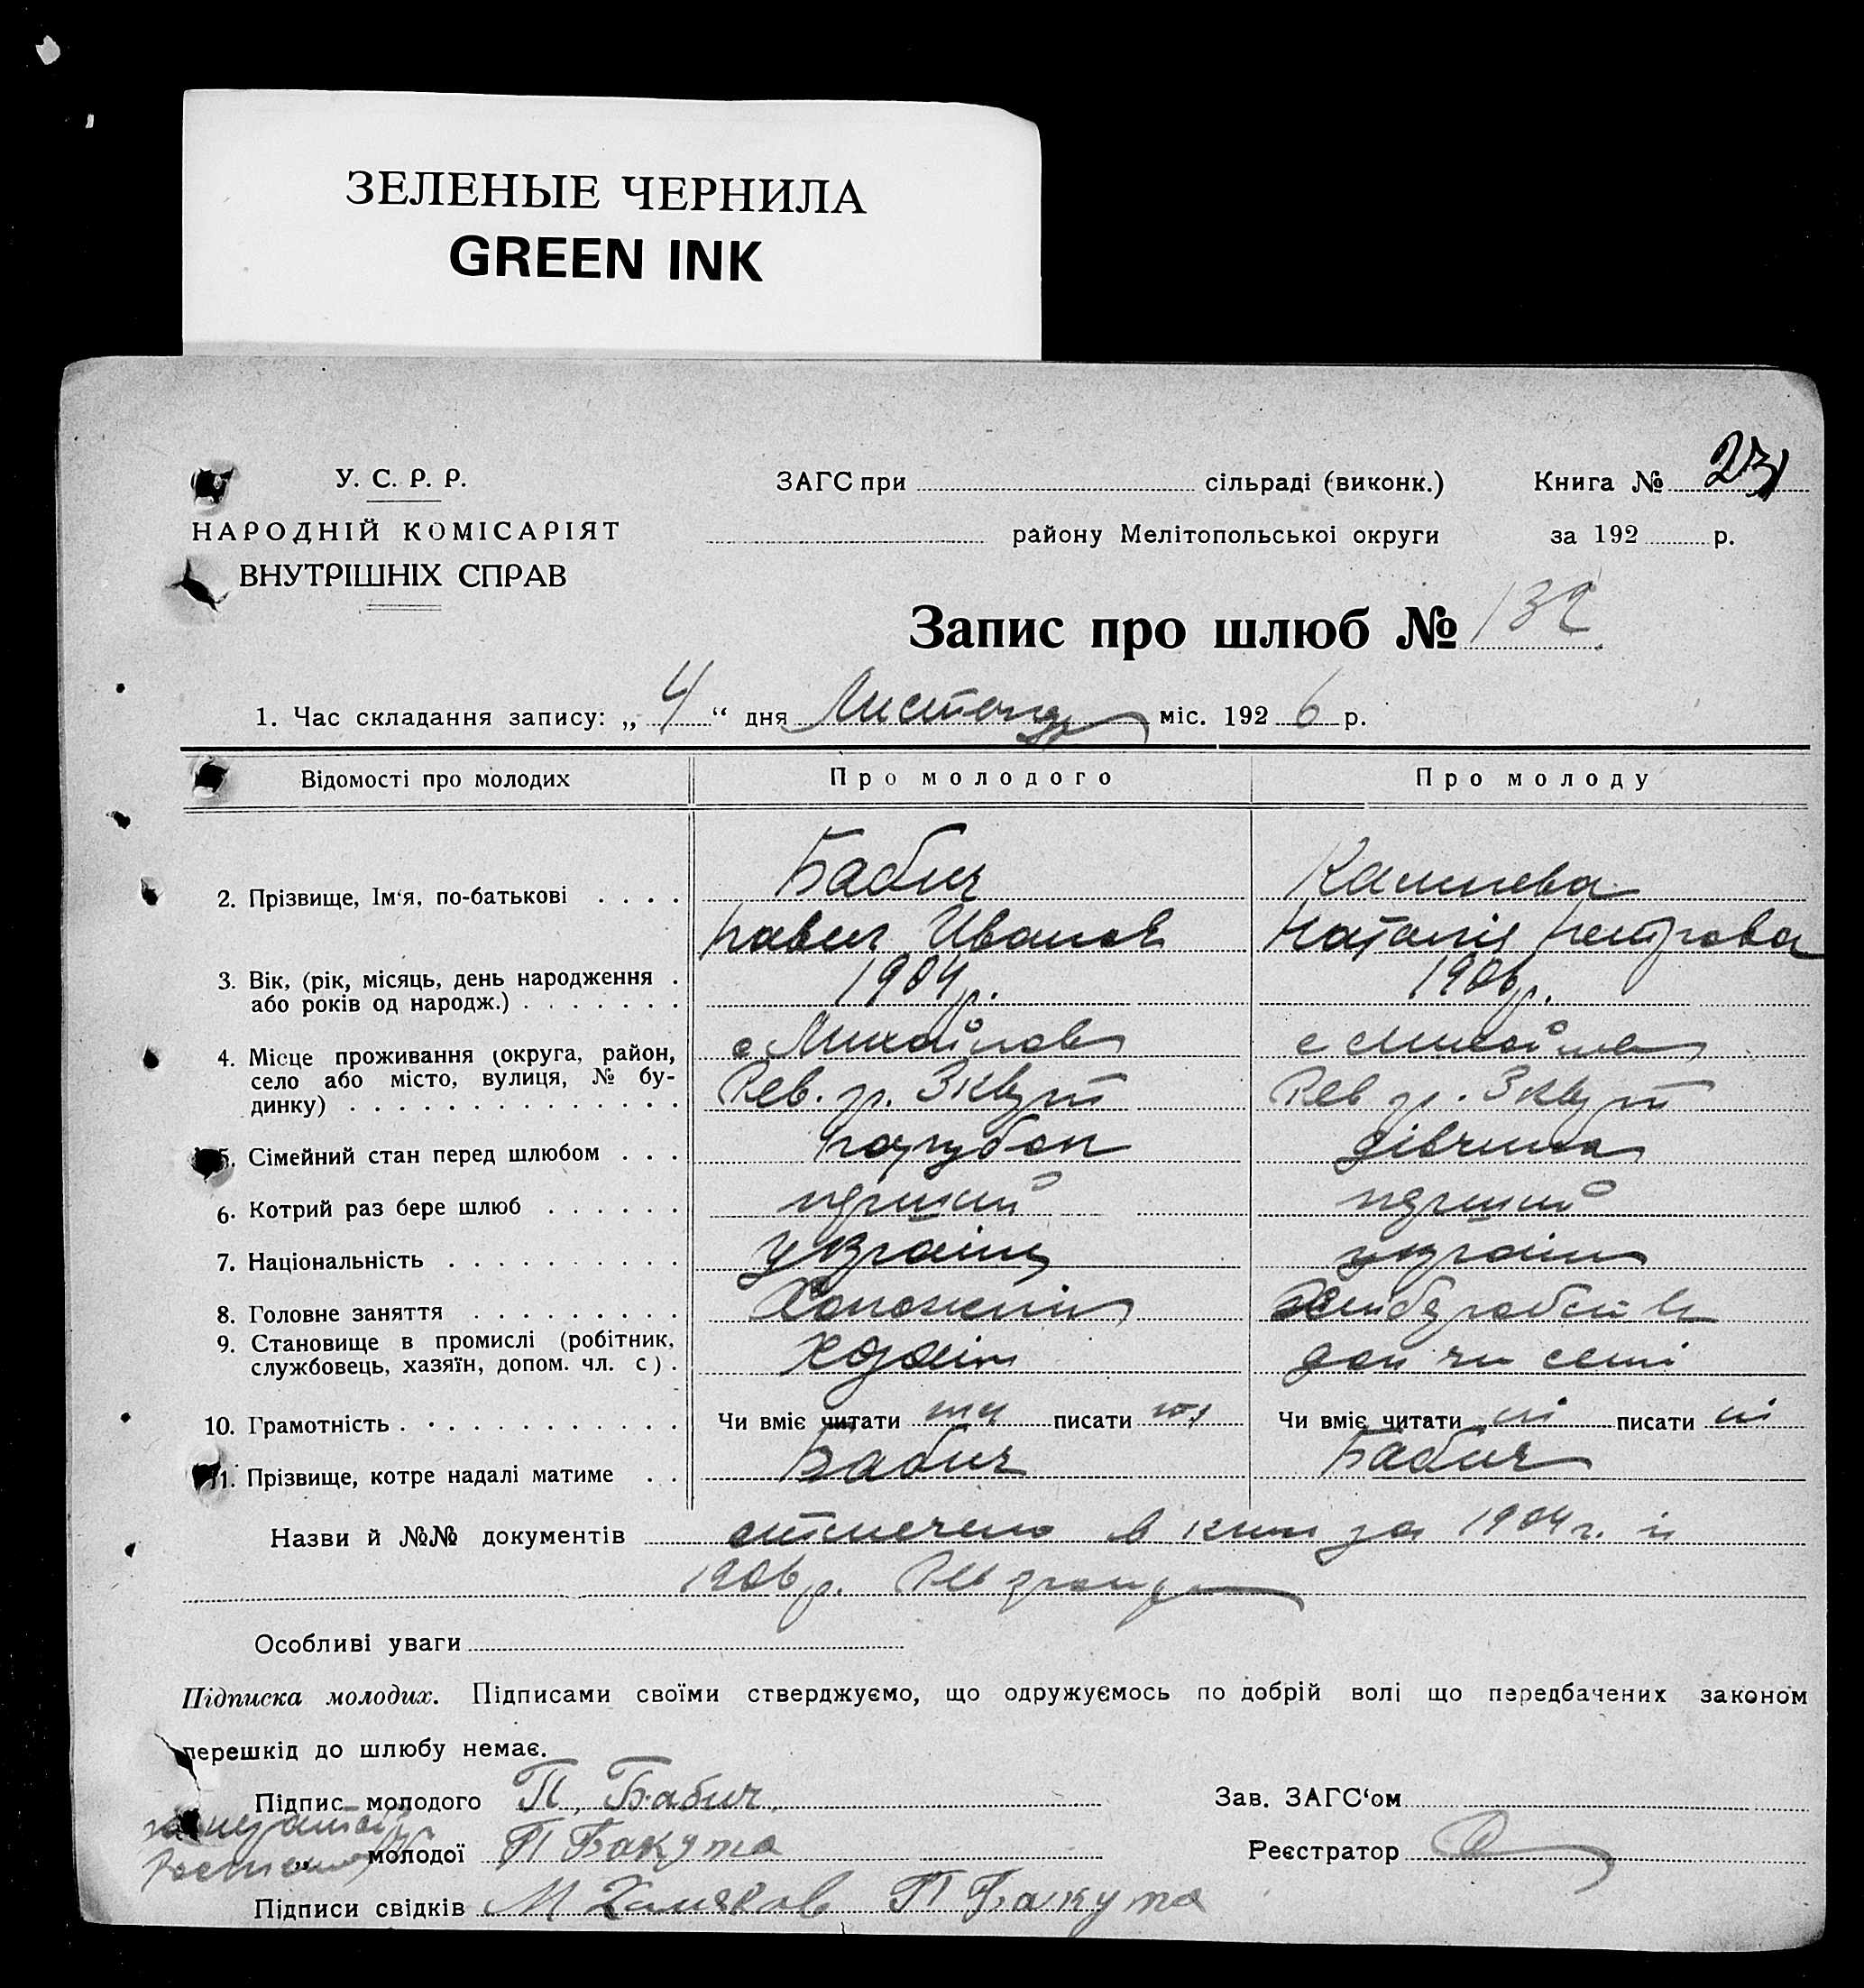 ЗЕЛЕНЫЕ ЧЕРНИЛА
GREEN INK
У. С. Р. Р.
НАРОДНІЙ КОМІСАРІЯТ
ВНУТРІШНІХ СПРАВ
ЗАГС при сільраді (виконк.)
району Мелітопольської округи
Книга №
за 192 р.
Запис про шлюб № 132
1. Час складання запису: „ 4 “ дня Листопад міс. 192 6 р.
Відомості про молодих Про молодого Про молоду
2. Прізвище, Ім‘я, по-батькові . . . . Бабич
Павел Иванов Наталія Петрова
3. Вік, (рік, місяць, день народження . 1904 р. 1906 р.
або років од народж.) . . . . . . .
4. Місце проживання (округа, район, с Михайлов с Михайлов
село або місто, вулиця, № бу- Рев. гр. 3 кут Рев гр. 3 кут
динку) . . . . . . . . . . . . . .
5. Сімейний стан перед шлюбом . . . парубок дівчина
6. Котрий раз бере шлюб . . . . . . перший перший
7. Національність . . . . . . . . . . україн україн
8. Головне заняття . . . . . . . . .
9. Становище в промислі (робітник,
службовець, хазяїн, допом. чл. с) . семі
10. Грамотність . . . . . . . . . . . Чи вміє читати так писати так Чи вміє читати ні писати ні
11. Прізвище, котре надалі матиме . . Бабич Бабич
Назви й №№ документів отмечено в книг за 1904 г. и
1906 р. Рев гром
Особливі уваги
Підписка молодих. Підписами своїми стверджуємо, що одружуємось по добрій волі що передбачених законом
перешкід до шлюбу немає.
Підпис молодого П. Бабич
„ молодої П Бакута
Підписи свідків М П Бакута
Зав. ЗАГС‘ом
Реєстратор